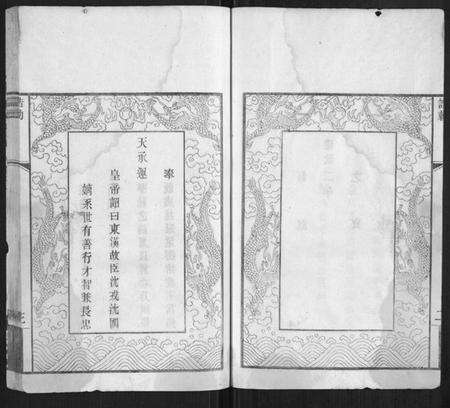 奉
天承運
皇帝詔曰東漢故臣沈戎沈酆
奕世有善行才智兼長忠
誥勅
三
二